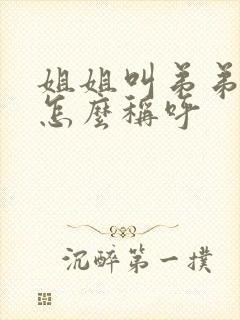 姐姐叫弟弟
怎麼稱呼
沉醉第一撲